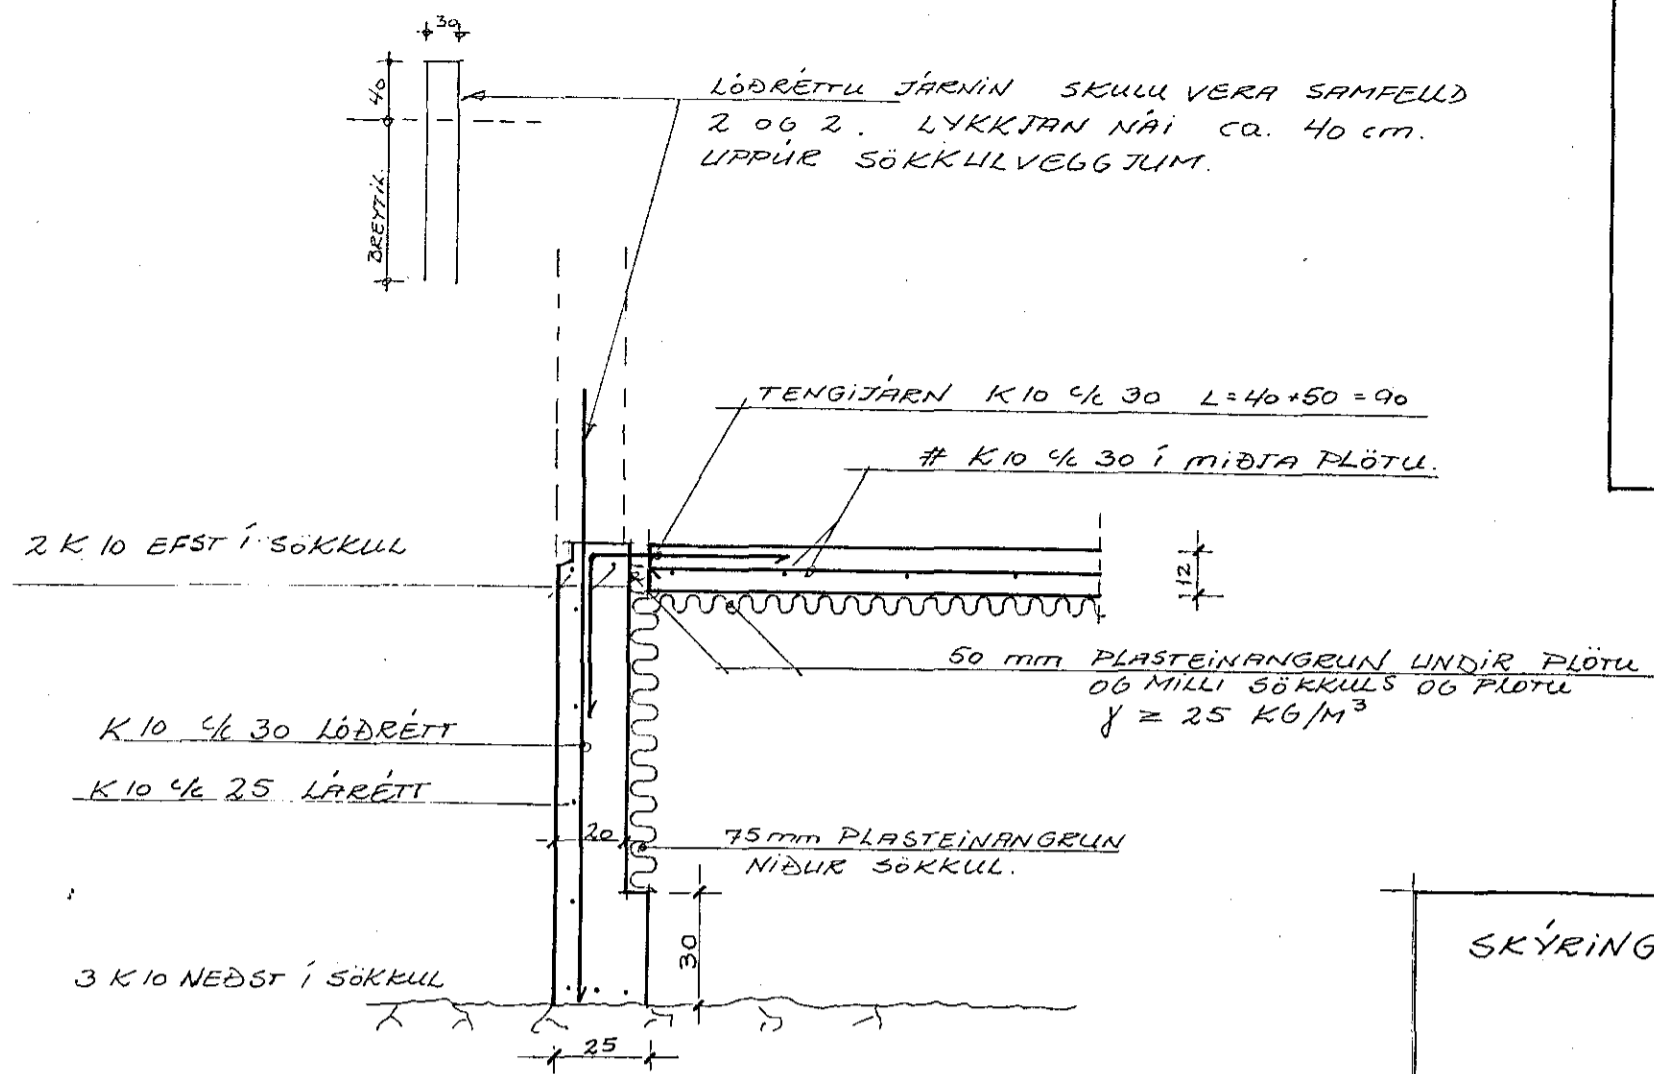 30
40
BREYTIL.
LÓÐRÉTTU JÁRNIN SKULU VERA SAMFELLD
2 OG 2. LYKKJAN NÁI ca. 40 cm.
UPPÚR SÖKKULVEGGJUM.
TENGIJÁRN K10 c/c 30 L=40+50=90
# K10 c/c 30 Í MIÐJA PLÖTU.
2 K10 EFST Í SÖKKUL
12
50 mm PLASTEINANGRUN UNDIR PLÖTU
OG MILLI SÖKKULS OG PLÖTU
γ = 25 KG/M³
K10 c/c 30 LÓÐRÉTT
K10 c/c 25 LÁRÉTT
20
75mm PLASTEINANGRUN
NIÐUR SÖKKUL.
30
SKÝRING
3 K10 NEÐST Í SÖKKUL
25